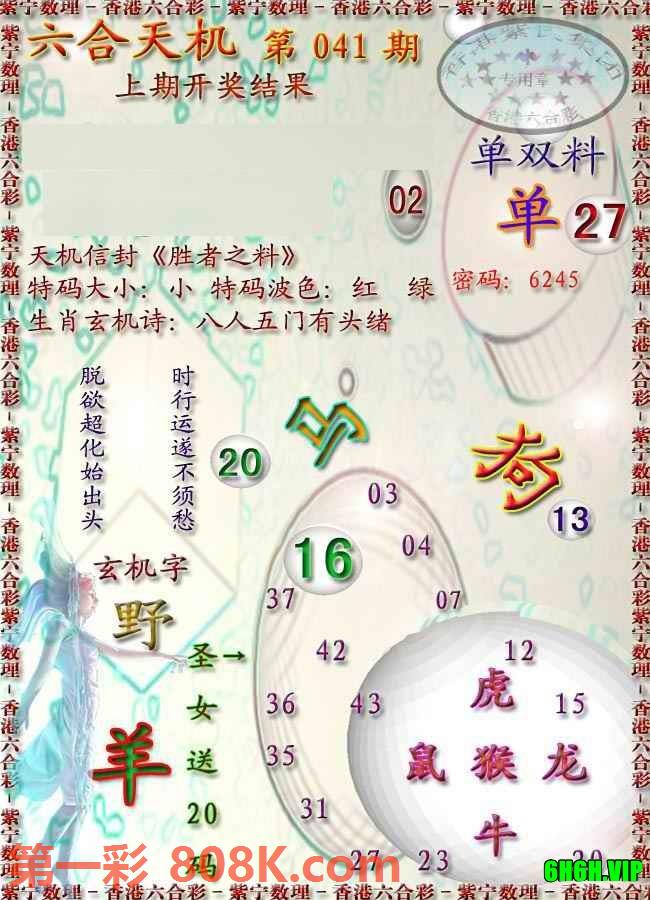 紫宁数理－香港六合彩－紫宁数理－香港六合彩－紫宁数理－香港六合彩
六合天机 第 041 期
上期开奖结果
专用章
香港六合彩
单双料
02
单 27
天机信封《胜者之料》
特码大小：小 特码波色：红 绿
密码：6245
生肖玄机诗：八人五门有头绪
脱欲超化始出头
时行运遂不须愁
20
马
13
03
16
04
37
07
玄机字
野
圣→
女
送
20
码
羊
42
12
36
43
虎
15
35
鼠 猴 龙
31
牛
27
23
第一彩 808K.com
6H6H.VIP
紫宁数理－香港六合彩－紫宁数理－香港六合彩－紫宁数理－香港六合彩